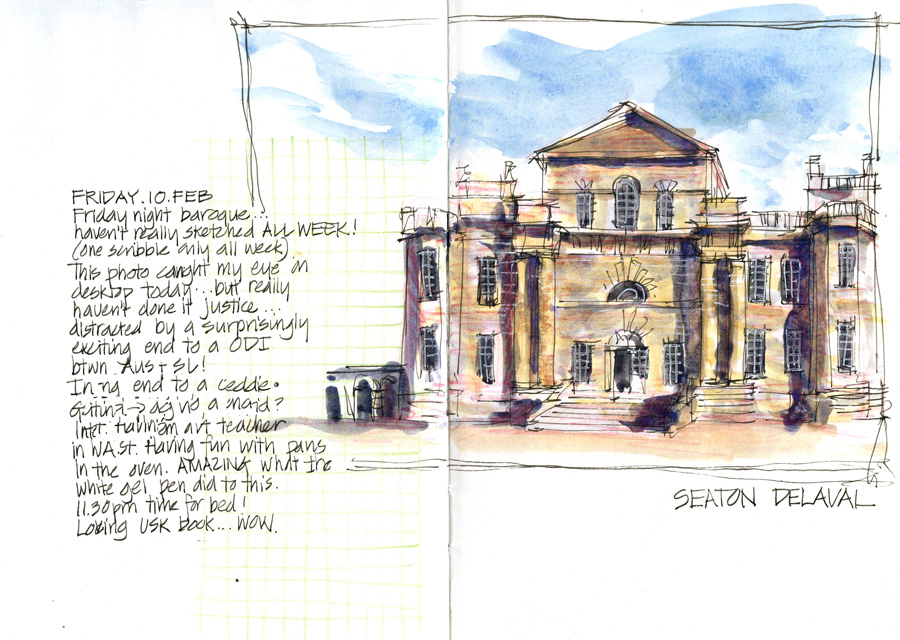 FRIDAY. 10. FEB
Friday night baroque...
haven't really sketched ALL WEEK!
(one scribble only all week)
This photo caught my eye on
desktop today... but really
haven't done it justice...
distracted by a surprisingly
exciting end to a ODI
btwn Aus + SL!
end to a
a
art teacher
in WA.St. Having fun with pans
in the oven. AMAZING what the
white gel pen did to this.
11.30pm time for bed!
Loving USK book... WOW.
SEATON DELAVAL